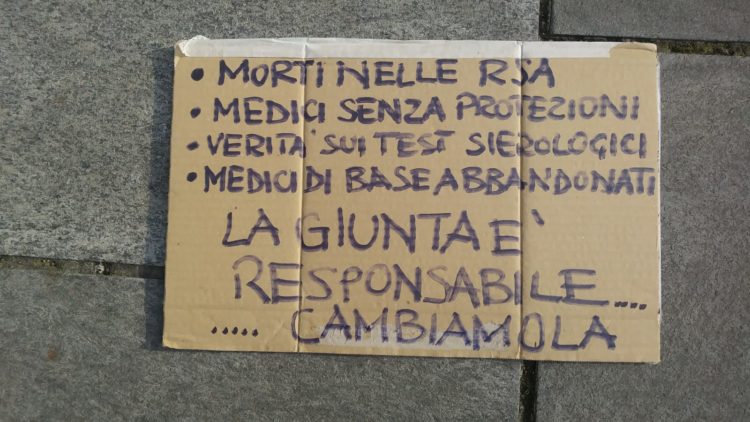 • MORTI NELLE RSA
• MEDICI SENZA PROTEZIONI
• VERITA' SUI TEST SIEROLOGICI
• MEDICI DI BASE ABBANDONATI
LA GIUNTA E'
RESPONSABILE....
..... CAMBIAMOLA